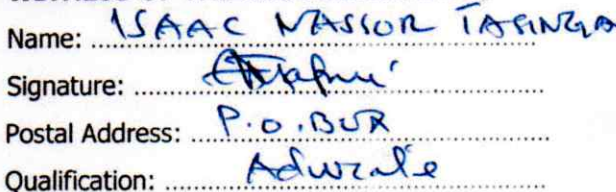 Name: ISAAC NASSOR TASINGA
Signature:
Postal Address: P.O.BOX
Qualification: Advocate